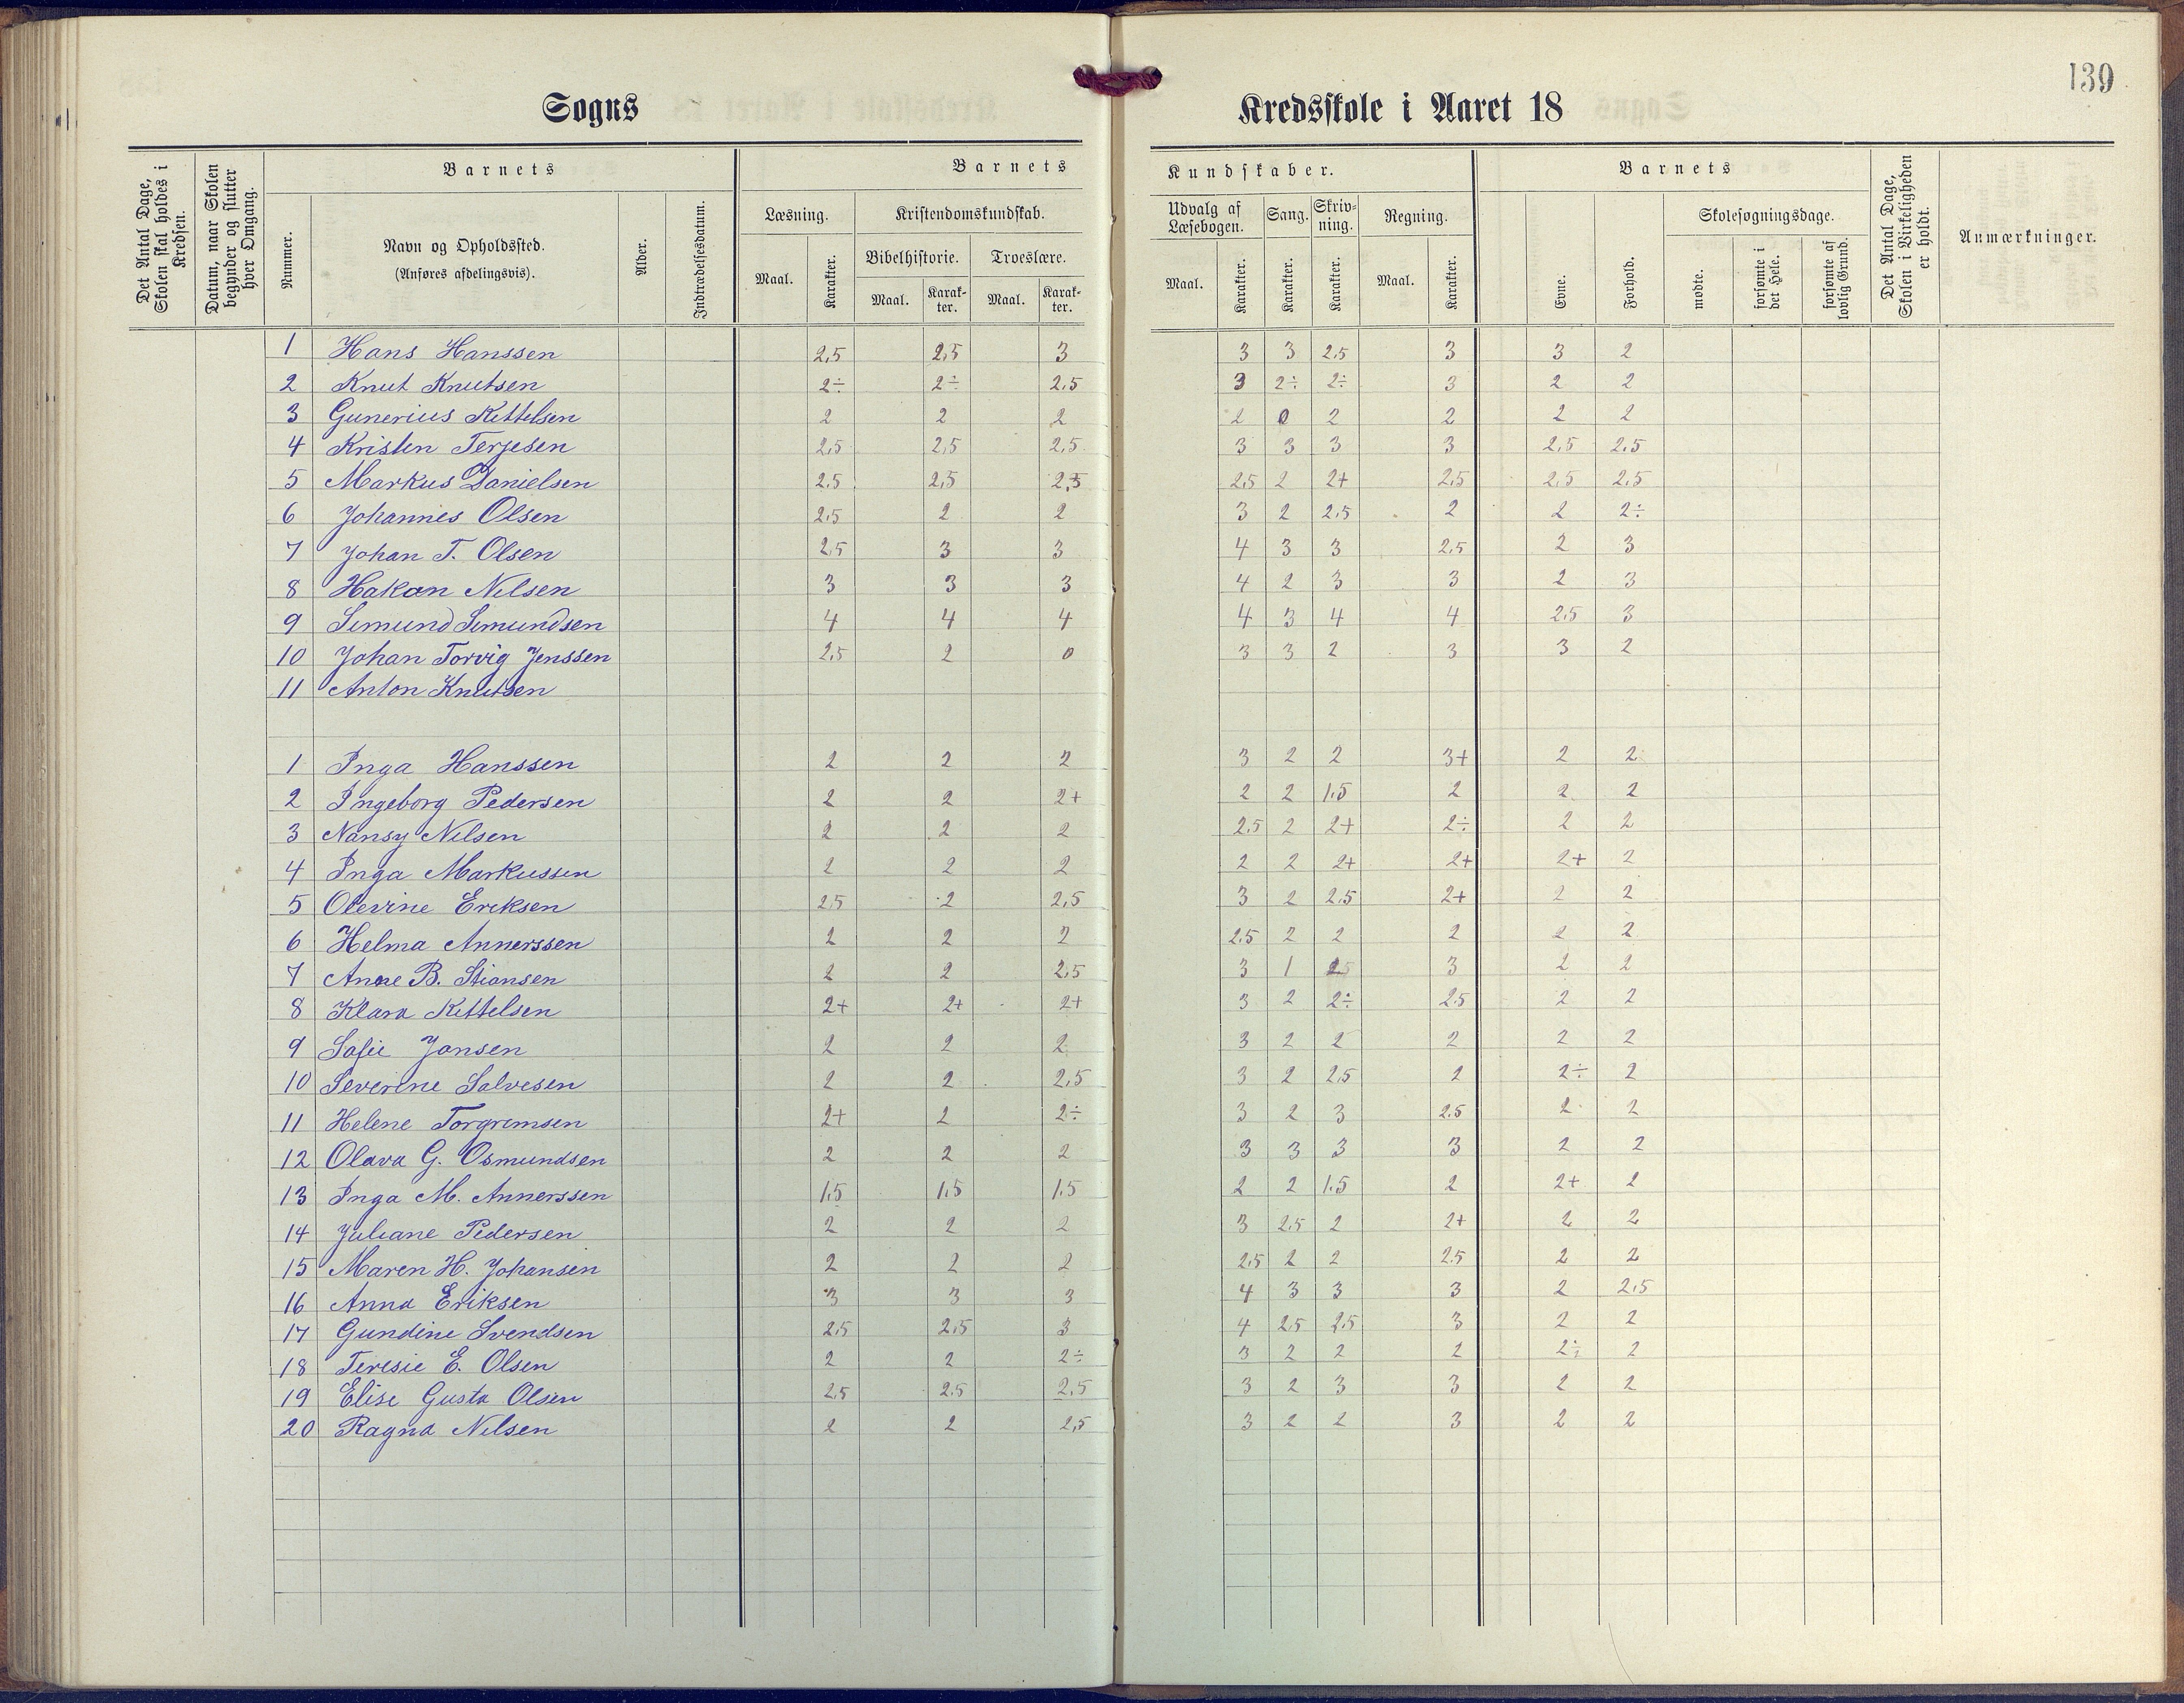 139
Sogns Kredsskole i Aaret 18
Det Antal Dage, Skolen skal holdes i Kredsen.
Datum, naar Skolen begynder og slutter hver Omgang.
Barnets
Nummer.
Navn og Opholdssted.
(Anføres afdelingsvis).
Alder.
Indtrædelsesdatum.
Barnets Kundskaber.
Læsning.
Maal. Karakter.
Kristendomskundskab.
Bibelhistorie. Troeslære.
Maal. Karakter. Maal. Karakter.
Udvalg af Læsebogen.
Maal. Karakter.
Sang.
Karakter.
Skrivning.
Karakter.
Regning.
Maal. Karakter.
Barnets
Evne. Forhold.
Skolesøgningsdage.
mødte. forsømte i det Hele. forsømte af lovlig Grund.
Det Antal Dage, Skolen i Virkeligheden er holdt.
Anmærkninger.
1 Hans Hanssen 2,5 2,5 3 3 3 2,5 3 3 2
2 Knut Knutsen 2÷ 2÷ 2,5 3 2÷ 2÷ 3 2 2
3 Gunerius Kettelsen 2 2 2 2 0 2 2 2 2
4 Kristen Terjesen 2,5 2,5 2,5 3 3 3 3 2,5 2,5
5 Markus Danielsen 2,5 2,5 2,5 2,5 2 2+ 2,5 2,5 2,5
6 Johannes Olsen 2,5 2 2 3 2 2,5 2 2 2÷
7 Johan T. Olsen 2,5 3 3 4 3 3 2,5 2 3
8 Hakan Nilsen 3 3 3 4 2 3 3 2 3
9 Simund Simundsen 4 4 4 4 3 4 4 2,5 3
10 Johan Torvig Jenssen 2,5 2 0 3 3 2 3 3 2
11 Anton Knutsen
1 Inga Hanssen 2 2 2 3 2 2 3+ 2 2
2 Ingeborg Pedersen 2 2 2+ 2 2 1,5 2 2 2
3 Nansy Nilsen 2 2 2 2,5 2 2+ 2÷ 2 2
4 Inga Markussen 2 2 2 2 2 2+ 2+ 2+ 2
5 Olevine Eriksen 2,5 2 2,5 3 2 2,5 2+ 2 2
6 Helma Annerssen 2 2 2 2,5 2 2 2 2 2
7 Anne B. Stiansen 2 2 2,5 3 1 2,5 3 2 2
8 Klara Kettelsen 2+ 2+ 2+ 3 2 2÷ 2,5 2 2
9 Sofie Jansen 2 2 2 3 2 2 2 2 2
10 Severine Salvesen 2 2 2,5 3 2 2,5 2 2÷ 2
11 Helene Torgrimsen 2+ 2 2÷ 3 2 3 2,5 2 2
12 Olava G. Osmundsen 2 2 2 3 3 3 3 2 2
13 Inga M. Annerssen 1,5 1,5 1,5 2 2 1,5 2 2+ 2
14 Juliane Pedersen 2 2 2 3 2,5 2 2+ 2 2
15 Maren H. Johansen 2 2 2 2,5 2 2 2,5 2 2
16 Anna Eriksen 3 3 3 4 3 3 3 2 2,5
17 Gundine Svendsen 2,5 2,5 3 4 2,5 2,5 3 2 2
18 Teresie E. Olsen 2 2 2÷ 3 2 2 2 2÷ 2
19 Elise Gusta Olsen 2,5 2,5 2,5 3 2 3 3 2 2
20 Ragna Nilsen 2 2 2,5 3 2 2 3 2 2